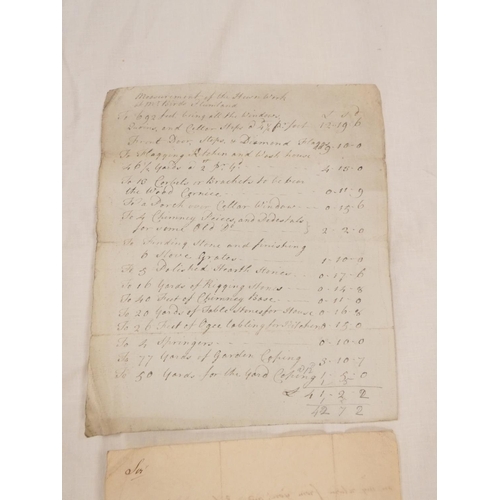 Measurement of the Stone Work
at Mr
To 692 feet being all the Windows £ s d
Doors, and Cellar Steps @ 4½ pr foot 12-19-6
Front Door, Steps, & Diamond Flaggs -10-0
To Flagging Kitchen and Wash house
46½ Yards @ 2s pr yd 4-13-0
To 10 Corbels or Brackets to be under
the Wood Cornice 0-11-9
To a Porch over Cellar Window 0-15-6
To 4 Chimney Pieces, and Pedestals
for some Old Do 2-2-0
To finding Stone and finishing
6 Stove Grates 1-10-0
To 5 Polished Hearth Stones 0-17-6
To 16 Yards of Rigging Stones 0-14-8
To 40 Feet of Chimney Base 0-11-0
To 20 Yards of Table Stone for House 0-16-8
To 26 Feet of Ogee tabling for Kitchen 0-13-0
To 4 Springers 0-10-0
To 77 Yards of Garden Coping 3-10-7
To 50 Yards for the Yard Coping 1-5-0
£ 41-2-2
42 7 2
Sir